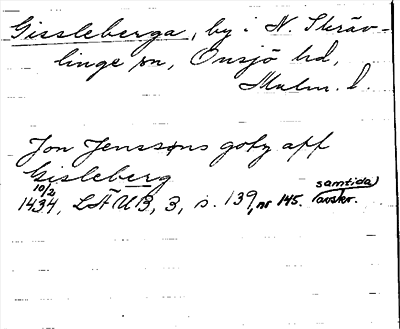 Gissleberga, by i N. Skräv-
linge sn, Onsjö hd,
Malm. l.
Jon Jenssøns gotz aff
Gisleberg
10/2 1434, LÄUB, 3, s. 139, nr 145. (samtida avskr.